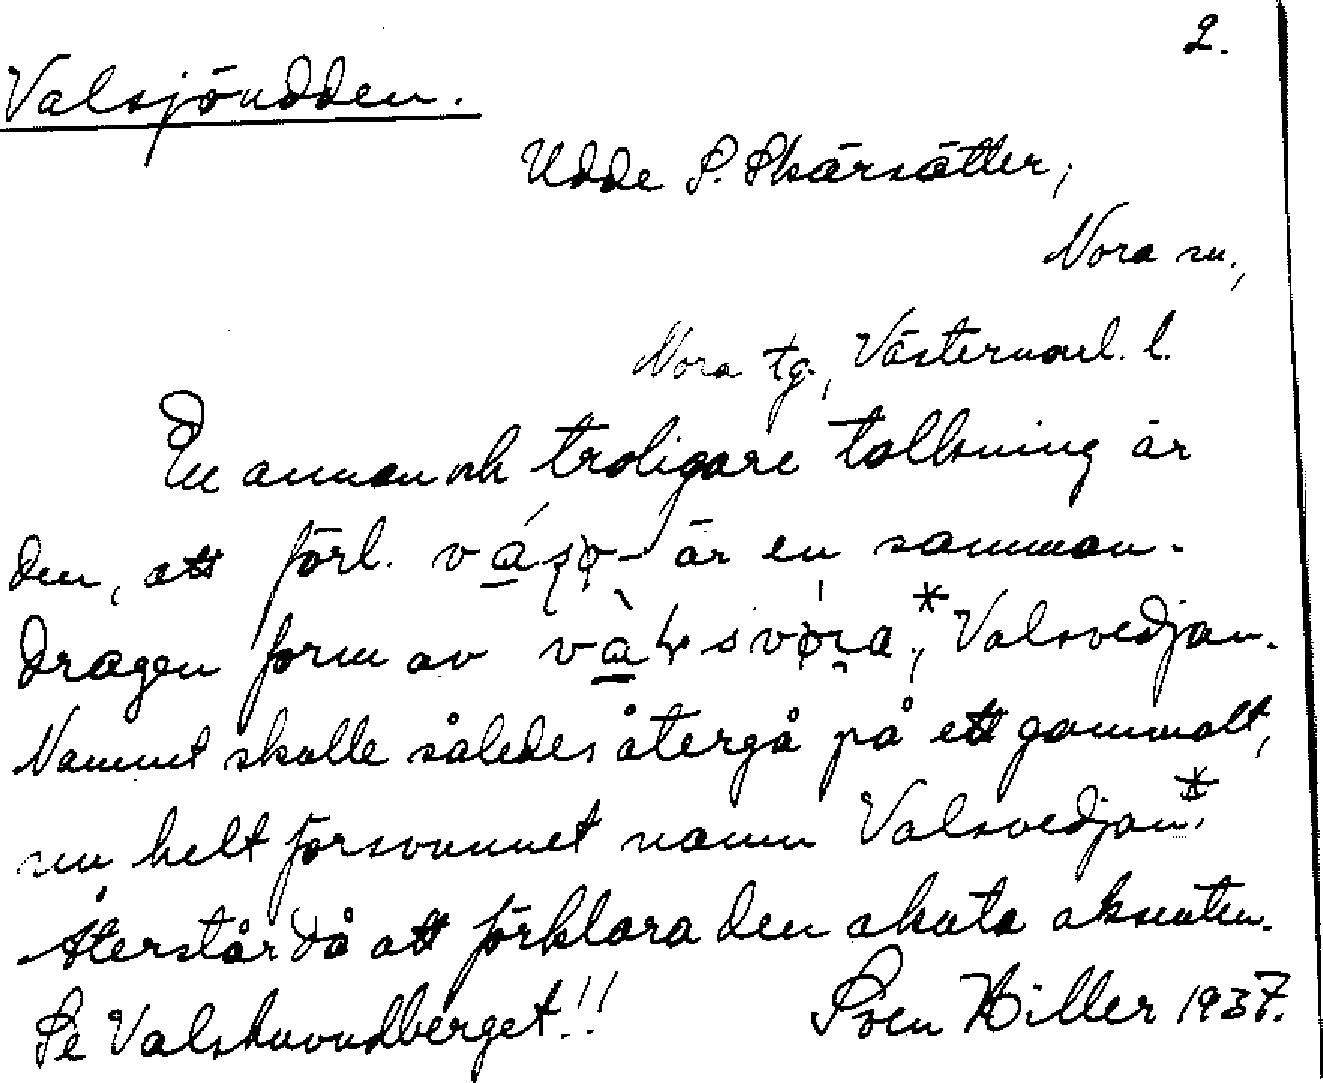 2.
Valsjöudden.
Udde S. Skärsätter,
Nora sn.,
Nora tg., Västernorrl. l.
En annan och troligare tolkning är
den, att förl. är en samman-
dragen form av Valsvedjan.
Namnet skulle således återgå på ett gammalt,
nu helt försvunnet namn Valsvedjan*.
Återstår då att förklara den akuta aksenten.
Se Valshuvudberget!!
Sven Hiller 1937.